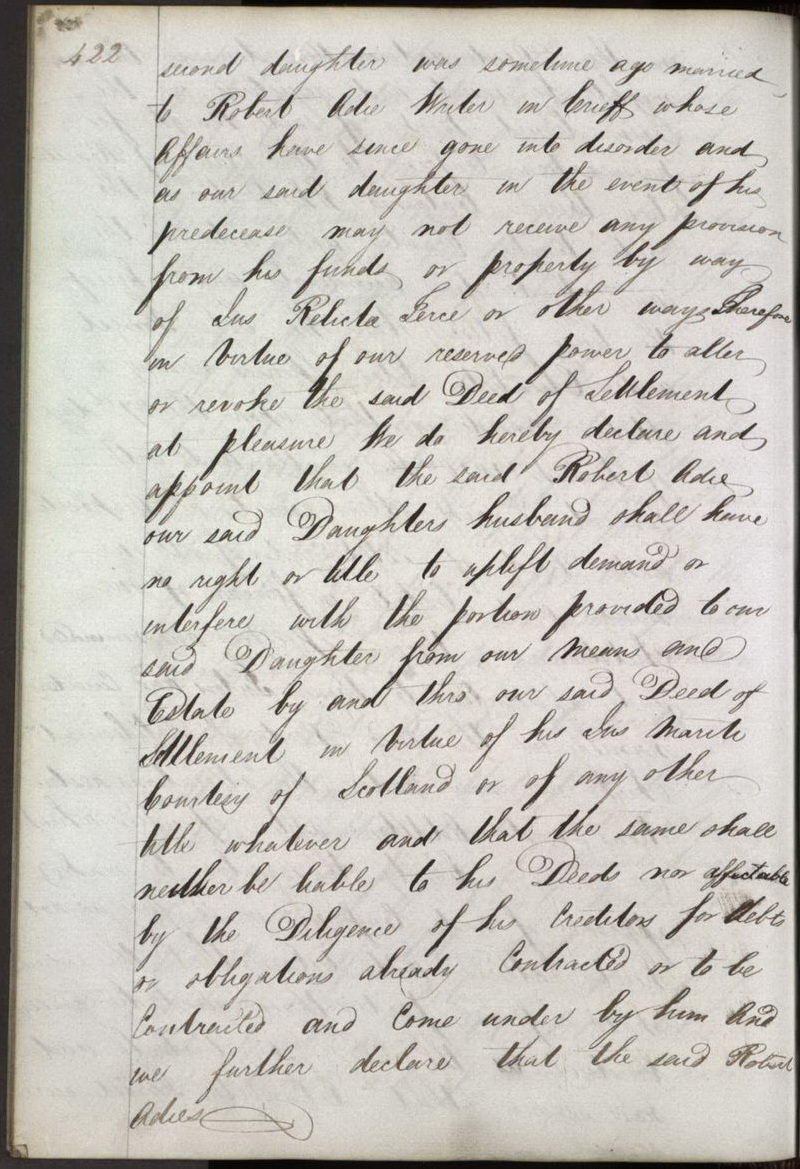 422
second daughter was sometime ago married
to Robert Adie Writer in Crieff whose
Affairs have since gone into disorder and
as our said daughter in the event of his
predecease may not receive any provision
from his funds or property by way
of Jus Relicta Terce or other ways Therefore
in Virtue of our reserved power to alter
or revoke the said Deed of Settlement
at pleasure We do hereby declare and
appoint that the said Robert Adie
our said Daughters husband shall have
no right or title to uplift demand or
interfere with the portion provided to our
said Daughter from our means and
Estate by and thro our said Deed of
Settlement in Virtue of his Jus Mariti
Courtesy of Scotland or of any other
title whatever and that the same shall
neither be liable to his Deeds nor affectable
by the Diligence of his Creditors for debts
or obligations already Contracted or to be
Contracted and Come under by him And
we further declare that the said Robert
Adies